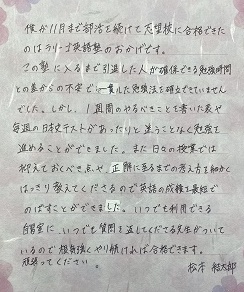 僕が11月まで部活を続けて志望校に合格できた
のはラリーゴ英語塾のおかげです。
この塾に入るまで引退した人が確保できる勉強時間
との差からの不安で一貫した勉強法を確立できていません
でした。しかし、1週間のやるべきことを書いた表や
毎週の日本史テストがあったりと迷うことなく勉強を
進めることができました。また日々の授業では
抑えておくべき点や、正解に至るまでの考え方を細かく
はっきり教えてくださるので英語の成績を最短で
のばすことができました。いつでも利用できる
自習室に いつでも質問を返してくださる先生がついて
いるので根気強くやり続ければ合格できます。
頑張ってください。
松本 結太郎